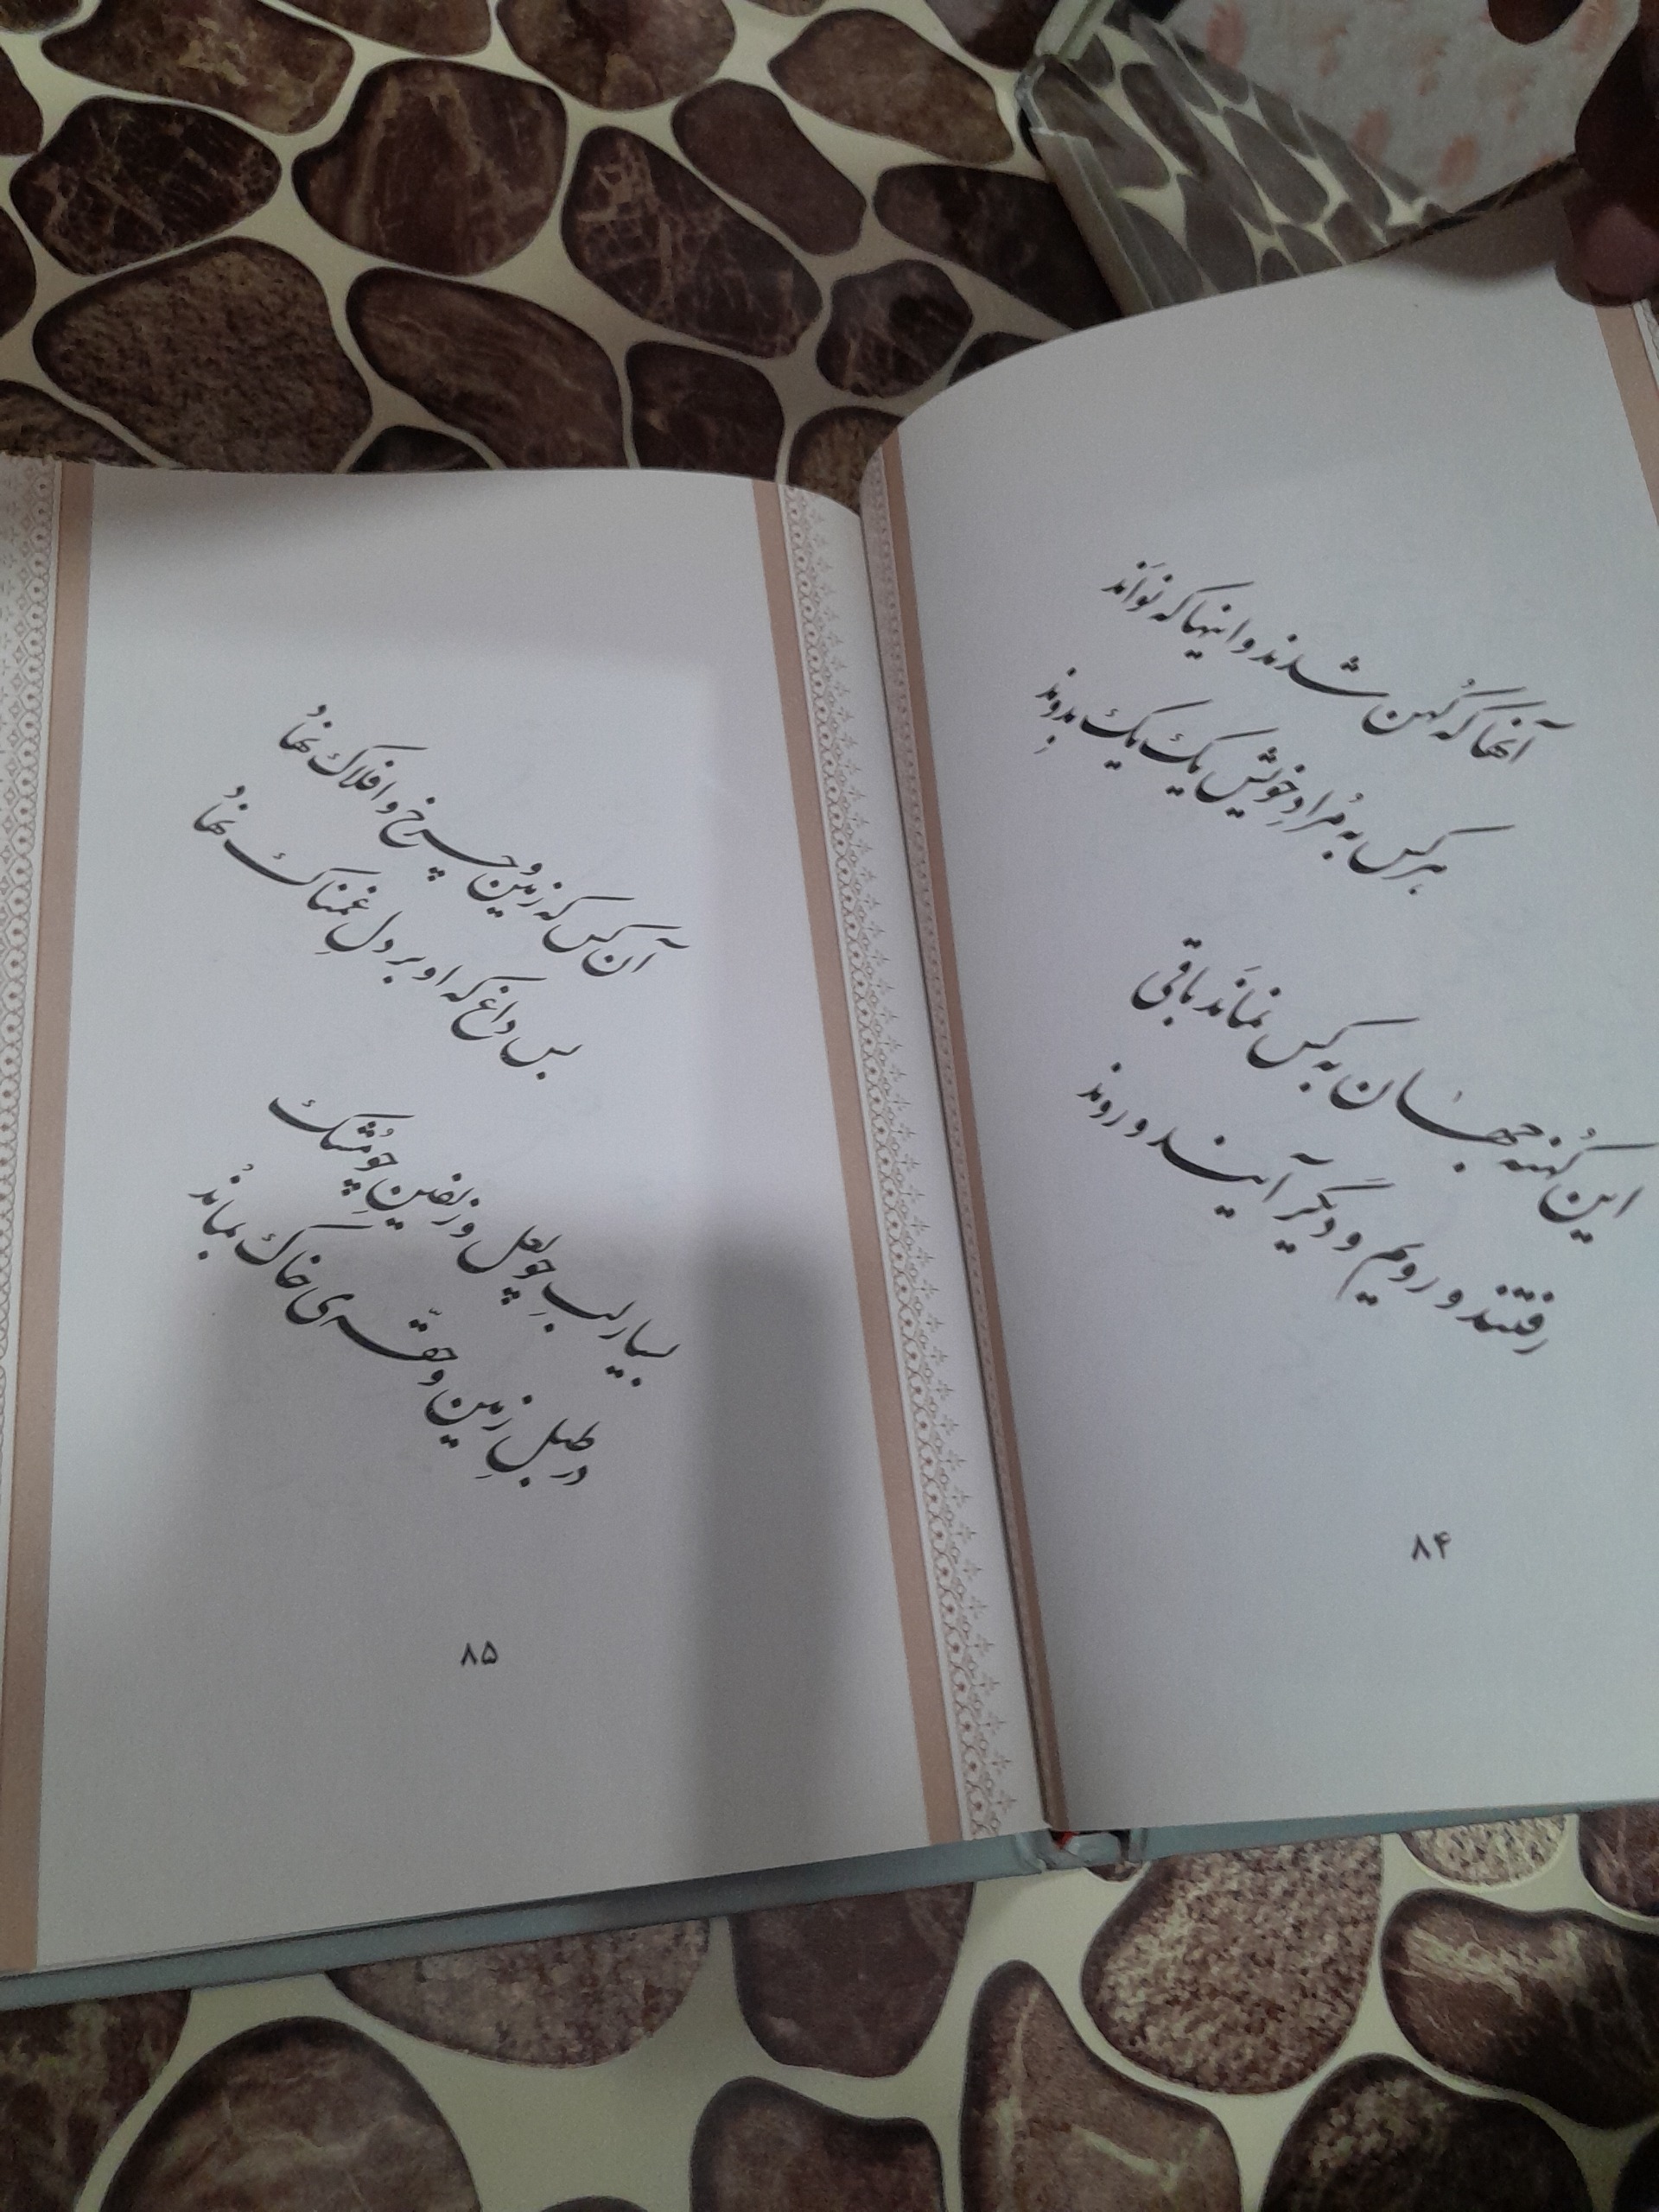 آنها که کُهن شدند و اینها که نَوَاند
هر کس به مُرادِ خویش یک یک بدِوند
این کُهنه جهان به کس نمانَد باقی
رفتند و رویم و دیگر آیند و روند
۸۴
آن کس که زمین و چرخ و افلاک نهادُ
بس داغ که او بر دل غمناک نهادُ
بسیار لبِ چو لعل و زلفینِ چو مُشک
در طبلِ زمین و حقّه‌ی خاک بماندُ
۸۵